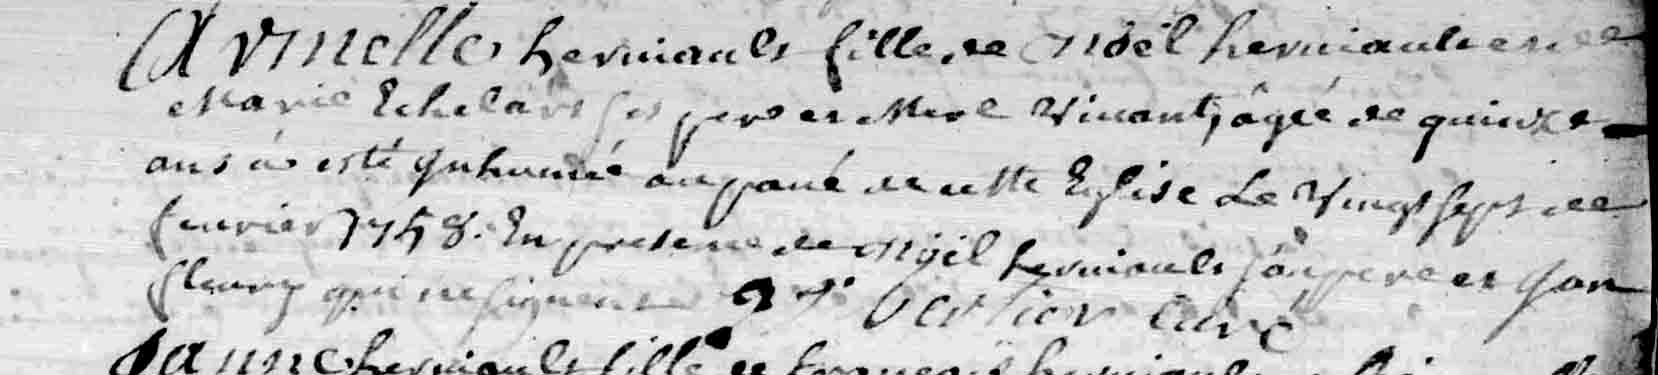 Armelle herviault fille de Noël herviault et de
Marie Echelard ses pere et Mere Vivants, agée de quinze
ans a esté ynhumée au pavé de cette Eglise Le Vingt sept de
fevrier 1758. En presence de Noël herviault son pere et Jan
fleury qui ne signent curé
Janne herviault fille de françois herviault